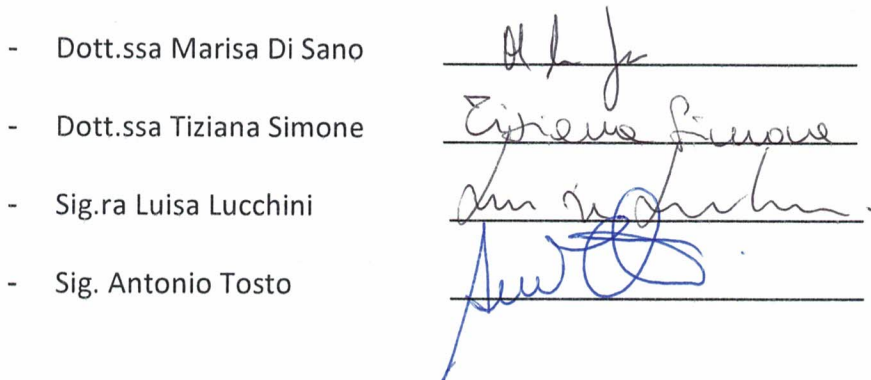 - Dott.ssa Marisa Di Sano
- Dott.ssa Tiziana Simone Tiziana Simone
- Sig.ra Luisa Lucchini
- Sig. Antonio Tosto